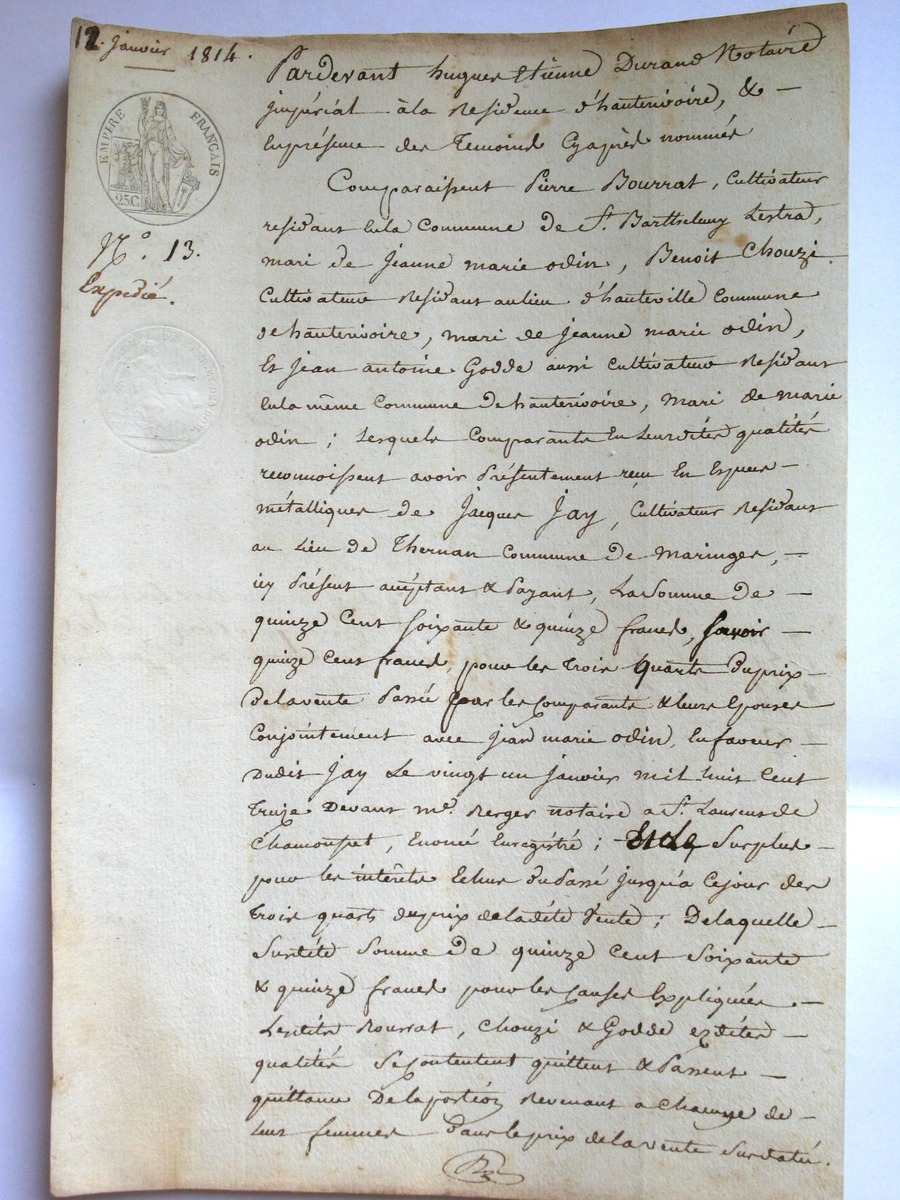 12. Janvier 1814.
EMPIRE FRANÇAIS
25C
N.º 13.
Expedié.
Pardevant hugues Etienne Durand Notaire
impérial à la Residence d'hauterivoire, & —
En présence des Temoins Cy après nommés
Comparaissent Pierre Bourrat, Cultivateur
residant en la Commune de St. Barthelemy Lestra,
mari de Jeanne marie odin, Benoit Chouzi
Cultivateur Residant au lieu d'hauteville Commune
de hauterivoire, mari de Jeanne marie odin,
Et Jean antoine Godde aussi Cultivateur Residant
En la même Commune de hauterivoire, mari de marie
odin ; Lesquels Comparants En leurs dites qualités
reconnoissent avoir Présentement reçu En Especes —
métalliques de Jacques Jay, Cultivateur Residant
au Lieu de Thernan Commune de Maringes, —
icy Présent acceptant & Payant, La Somme de —
quinze Cent soixante & quinze francs, savoir —
quinze Cent francs, pour les trois quarts du prix —
De la vente Passée par les Comparants & leurs Epouses
Conjointement avec Jean marie odin, En faveur —
Dudit Jay Le vingt un Janvier mil huit Cent
treize Devant me. Berger notaire a St. Laurent de
Chamousset, Enoncé Enregistré ; Et Le Surplus —
pour les intérêts Echus du Passé Jusqu'a Ce jour des
trois quarts du prix de la dite Vente ; De laquelle —
Susdite Somme de quinze Cent Soixante
& quinze francs pour les Causes Expliquées —
Lesdits Bourrat, Chouzi & Godde ezdites —
qualités Se Contentent quittent & Passent —
quittance De la portion Revenant a Chacune de —
leurs femmes dans le prix de la vente Susdatée.